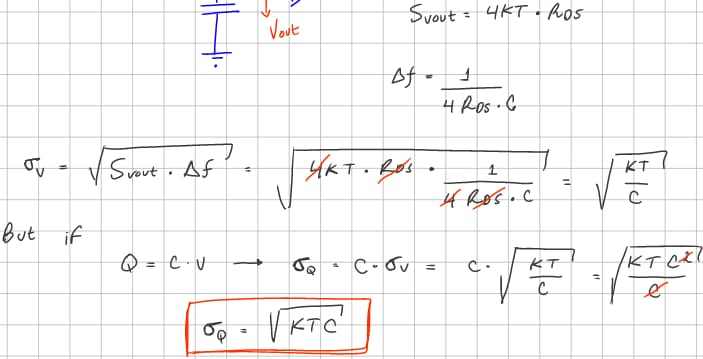 Svout = 4KT · Ros
Vout
Δf = 1 / (4 Ros · C)
σv = √(Svout · Δf) = √(4KT · Ros · 1 / (4 Ros · C)) = √(KT / C)
But if
Q = C · V → σQ = C · σv = C · √(KT / C) = √(KT C² / C)
σQ = √(KTC)